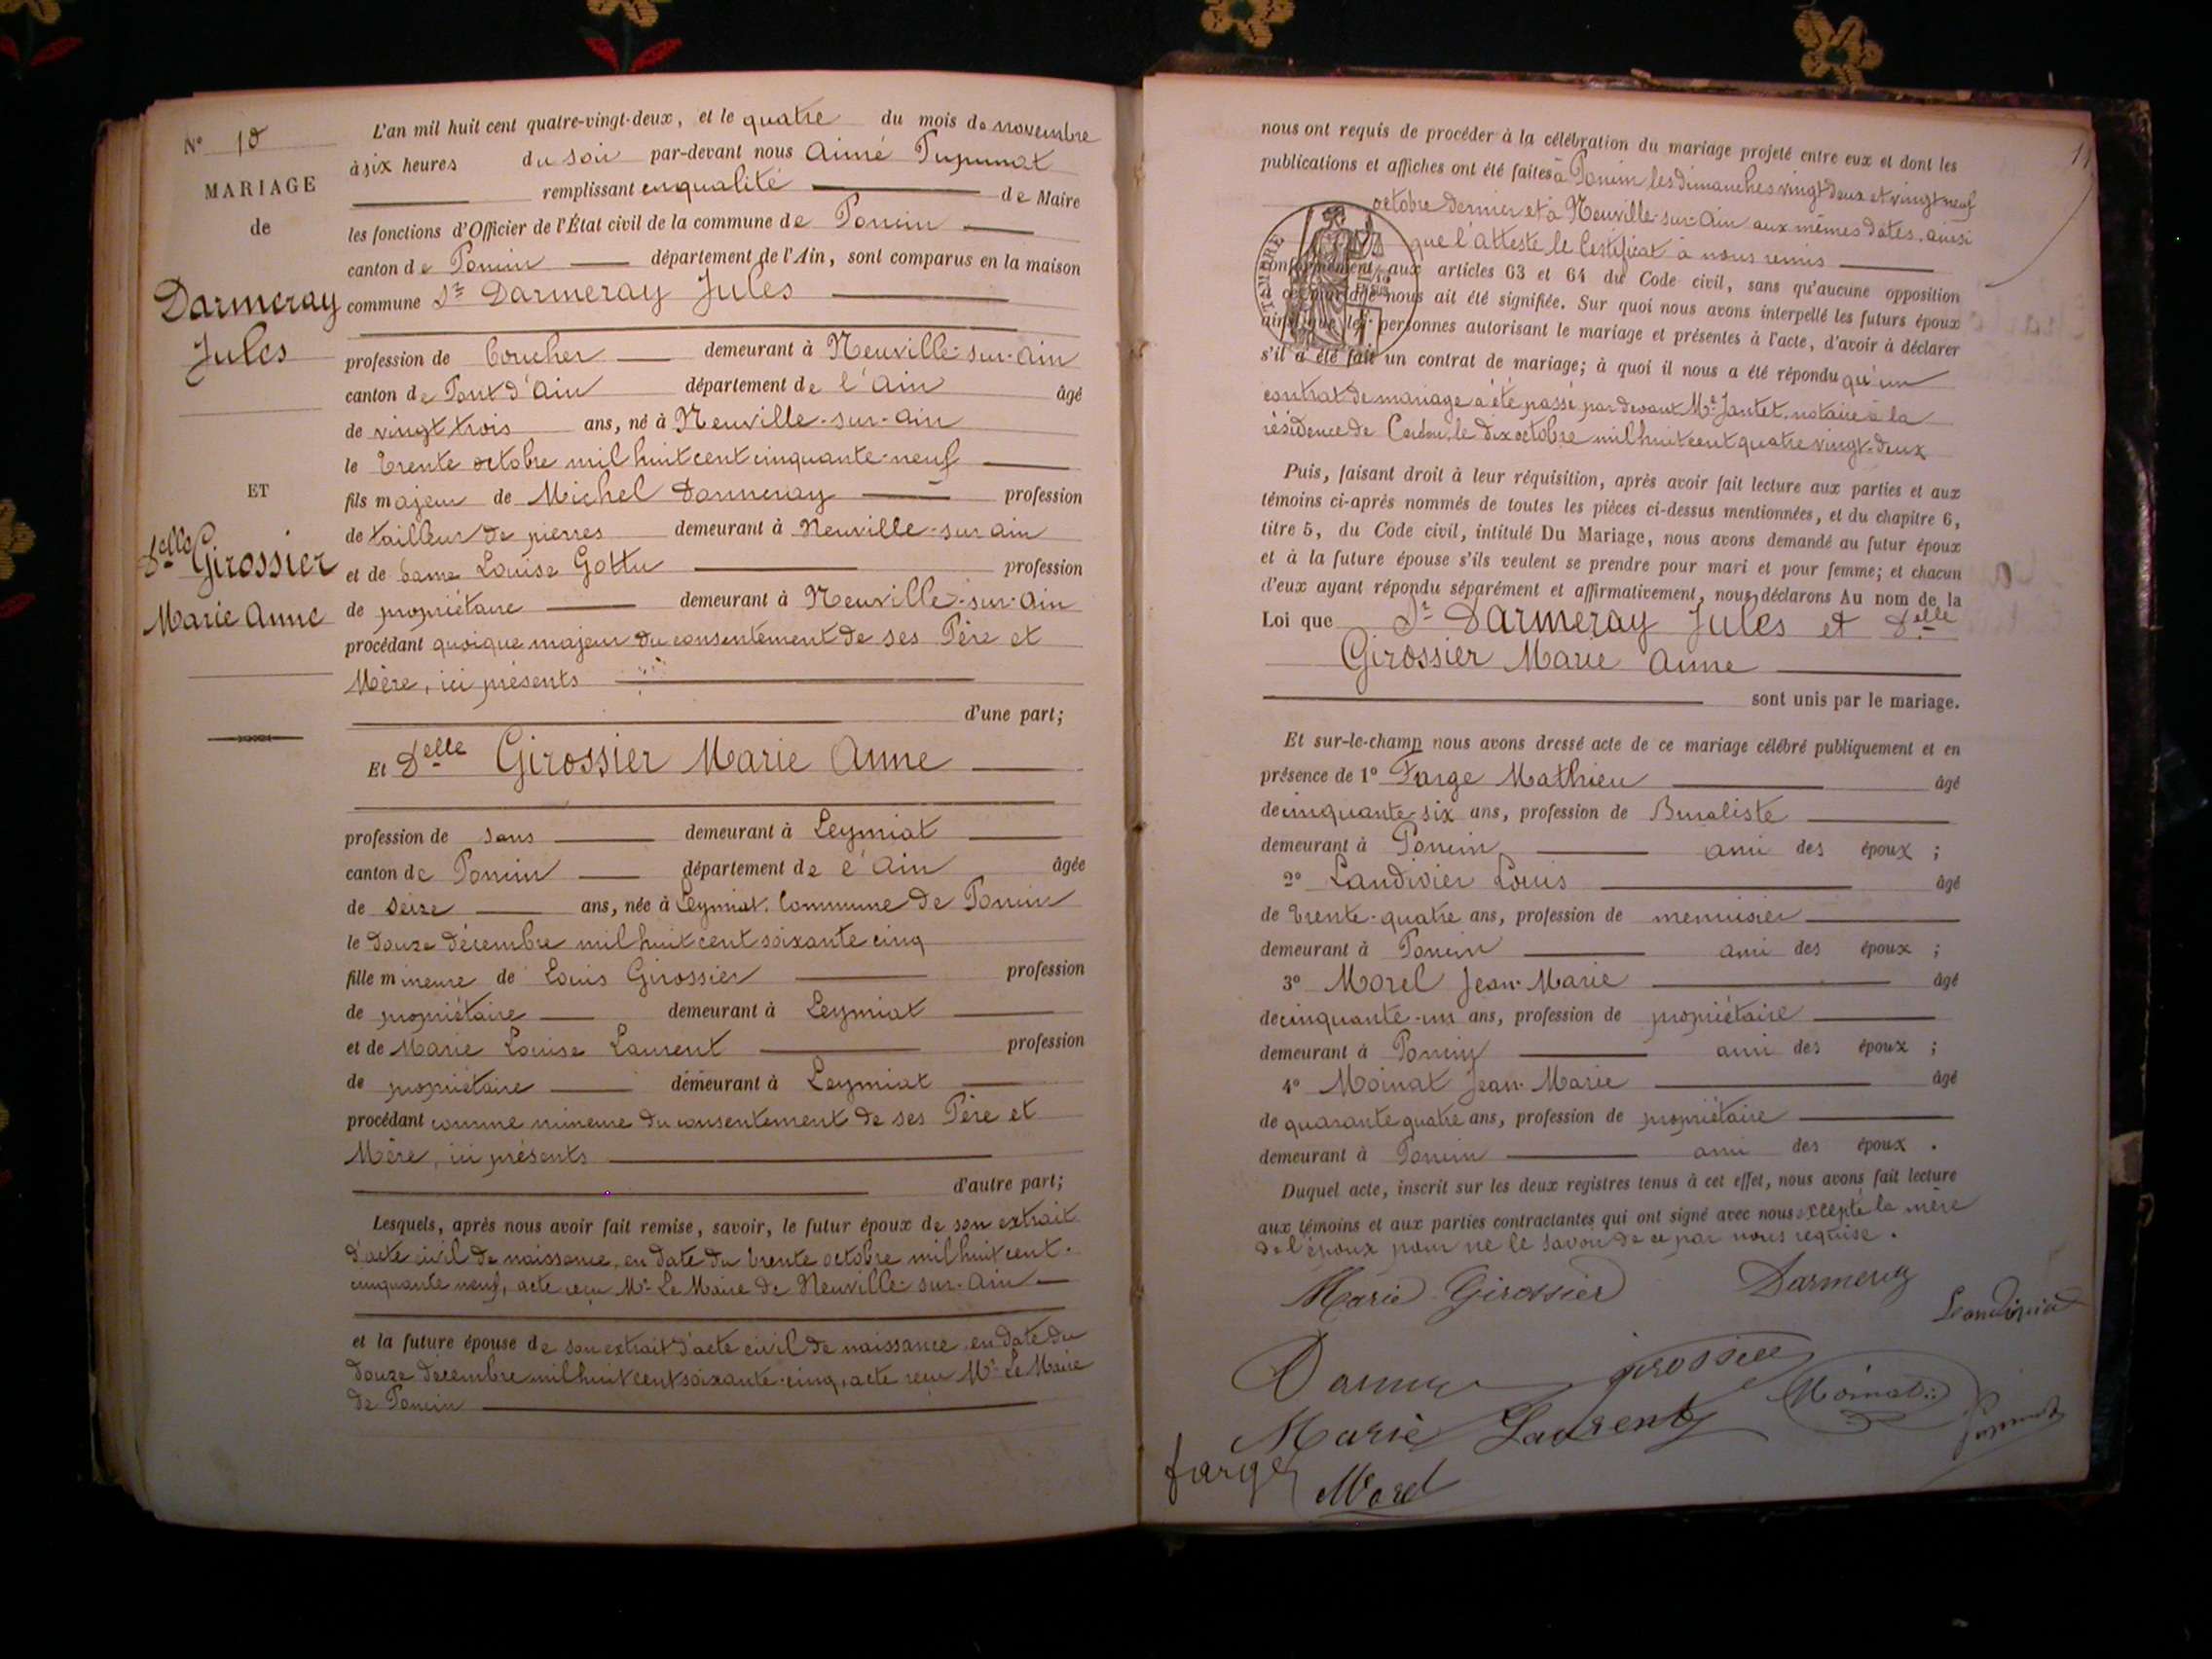 N° 10
MARIAGE
de
Darmeray
Jules
ET
Delle Girossier
Marie Anne
L'an mil huit cent quatre-vingt-deux, et le quatre du mois de novembre
à six heures du soir par-devant nous Aimé Pupunat
remplissant en qualité de Maire
les fonctions d'Officier de l'État civil de la commune de Poncin
canton de Poncin département de l'Ain, sont comparus en la maison
commune Sr Darmeray Jules
profession de demeurant à Neuville-sur-Ain
canton de Pont d'Ain département de l'Ain âgé
de vingt trois ans, né à Neuville-sur-Ain
le trente octobre mil huit cent cinquante-neuf
fils majeur de Michel Darmeray profession
de tailleur de pierres demeurant à Neuville-sur-Ain
et de Dame Louise Gottu profession
de propriétaire demeurant à Neuville-sur-Ain
procédant quoique majeur du consentement de ses Père et
Mère, ici présents
d'une part;
Et Delle Girossier Marie Anne
profession de sans demeurant à Leymiat
canton de Poncin département de l'Ain âgée
de seize ans, née à Leymiat. Commune de Poncin
le douze décembre mil huit cent soixante cinq
fille mineure de Louis Girossier profession
de propriétaire demeurant à Leymiat
et de Marie Louise Laurent profession
de propriétaire demeurant à Leymiat
procédant comme mineure du consentement de ses Père et
Mère, ici présents
d'autre part;
Lesquels, après nous avoir fait remise, savoir, le futur époux de son extrait
d'acte civil de naissance, en date du trente octobre mil huit cent.
cinquante neuf, acte reçu Mr Le Maire de Neuville-sur-Ain
et la future épouse de son extrait d'acte civil de naissance, en date du
douze décembre mil huit cent soixante-cinq, acte reçu Mr Le Maire
de Poncin
11
nous ont requis de procéder à la célébration du mariage projeté entre eux et dont les
publications et affiches ont été faites à Poncin les dimanches vingt deux et vingt neuf
octobre dernier et à Neuville-sur-Ain aux mêmes dates, ainsi
que l'atteste le Certificat à nous remis
TIMBRE
conformément aux articles 63 et 64 du Code civil, sans qu'aucune opposition
à ce mariage nous ait été signifiée. Sur quoi nous avons interpellé les futurs époux
ainsi que les personnes autorisant le mariage et présentes à l'acte, d'avoir à déclarer
s'il a été fait un contrat de mariage; à quoi il nous a été répondu qu'un
contrat de mariage a été passé par devant Me Jantet, notaire à la
résidence de Cerdon, le dix octobre mil huit cent quatre vingt-deux
Puis, faisant droit à leur réquisition, après avoir fait lecture aux parties et aux
témoins ci-après nommés de toutes les pièces ci-dessus mentionnées, et du chapitre 6,
titre 5, du Code civil, intitulé Du Mariage, nous avons demandé au futur époux
et à la future épouse s'ils veulent se prendre pour mari et pour femme; et chacun
d'eux ayant répondu séparément et affirmativement, nous déclarons Au nom de la
Loi que Sr Darmeray Jules et Delle
Girossier Marie Anne
sont unis par le mariage.
Et sur-le-champ nous avons dressé acte de ce mariage célébré publiquement et en
présence de 1° Farge Mathieu âgé
de cinquante six ans, profession de Buraliste
demeurant à Poncin ami des époux ;
2° Landivier Louis âgé
de trente-quatre ans, profession de menuisier
demeurant à Poncin ami des époux ;
3° Morel Jean-Marie âgé
de cinquante-un ans, profession de propriétaire
demeurant à Poncin ami des époux ;
4° Moinat Jean-Marie âgé
de quarante quatre ans, profession de propriétaire
demeurant à Poncin ami des époux .
Duquel acte, inscrit sur les deux registres tenus à cet effet, nous avons fait lecture
aux témoins et aux parties contractantes qui ont signé avec nous excepté la mère
de l'époux pour ne le savoir de ce par nous requise.
Marie Girossier Darmeray
Girossier
Moinat
Marie Laurent
farge Morel